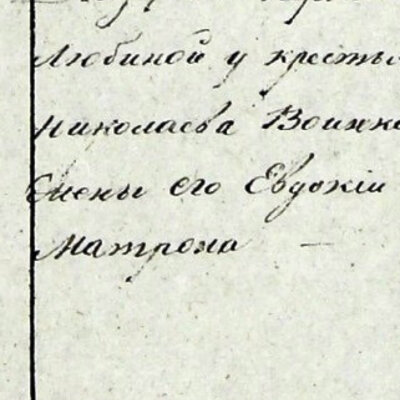 Любиной у кресть
Николаева Воинко
Жены его Евдокіи
Матрона